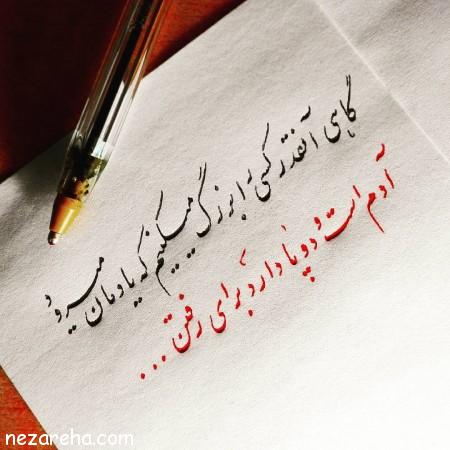 گاهی آنقدر کسی را بزرگ میکنیم که یادمان میرود
آدم است و دو پا دارد برای رفتن...
nezareha.com